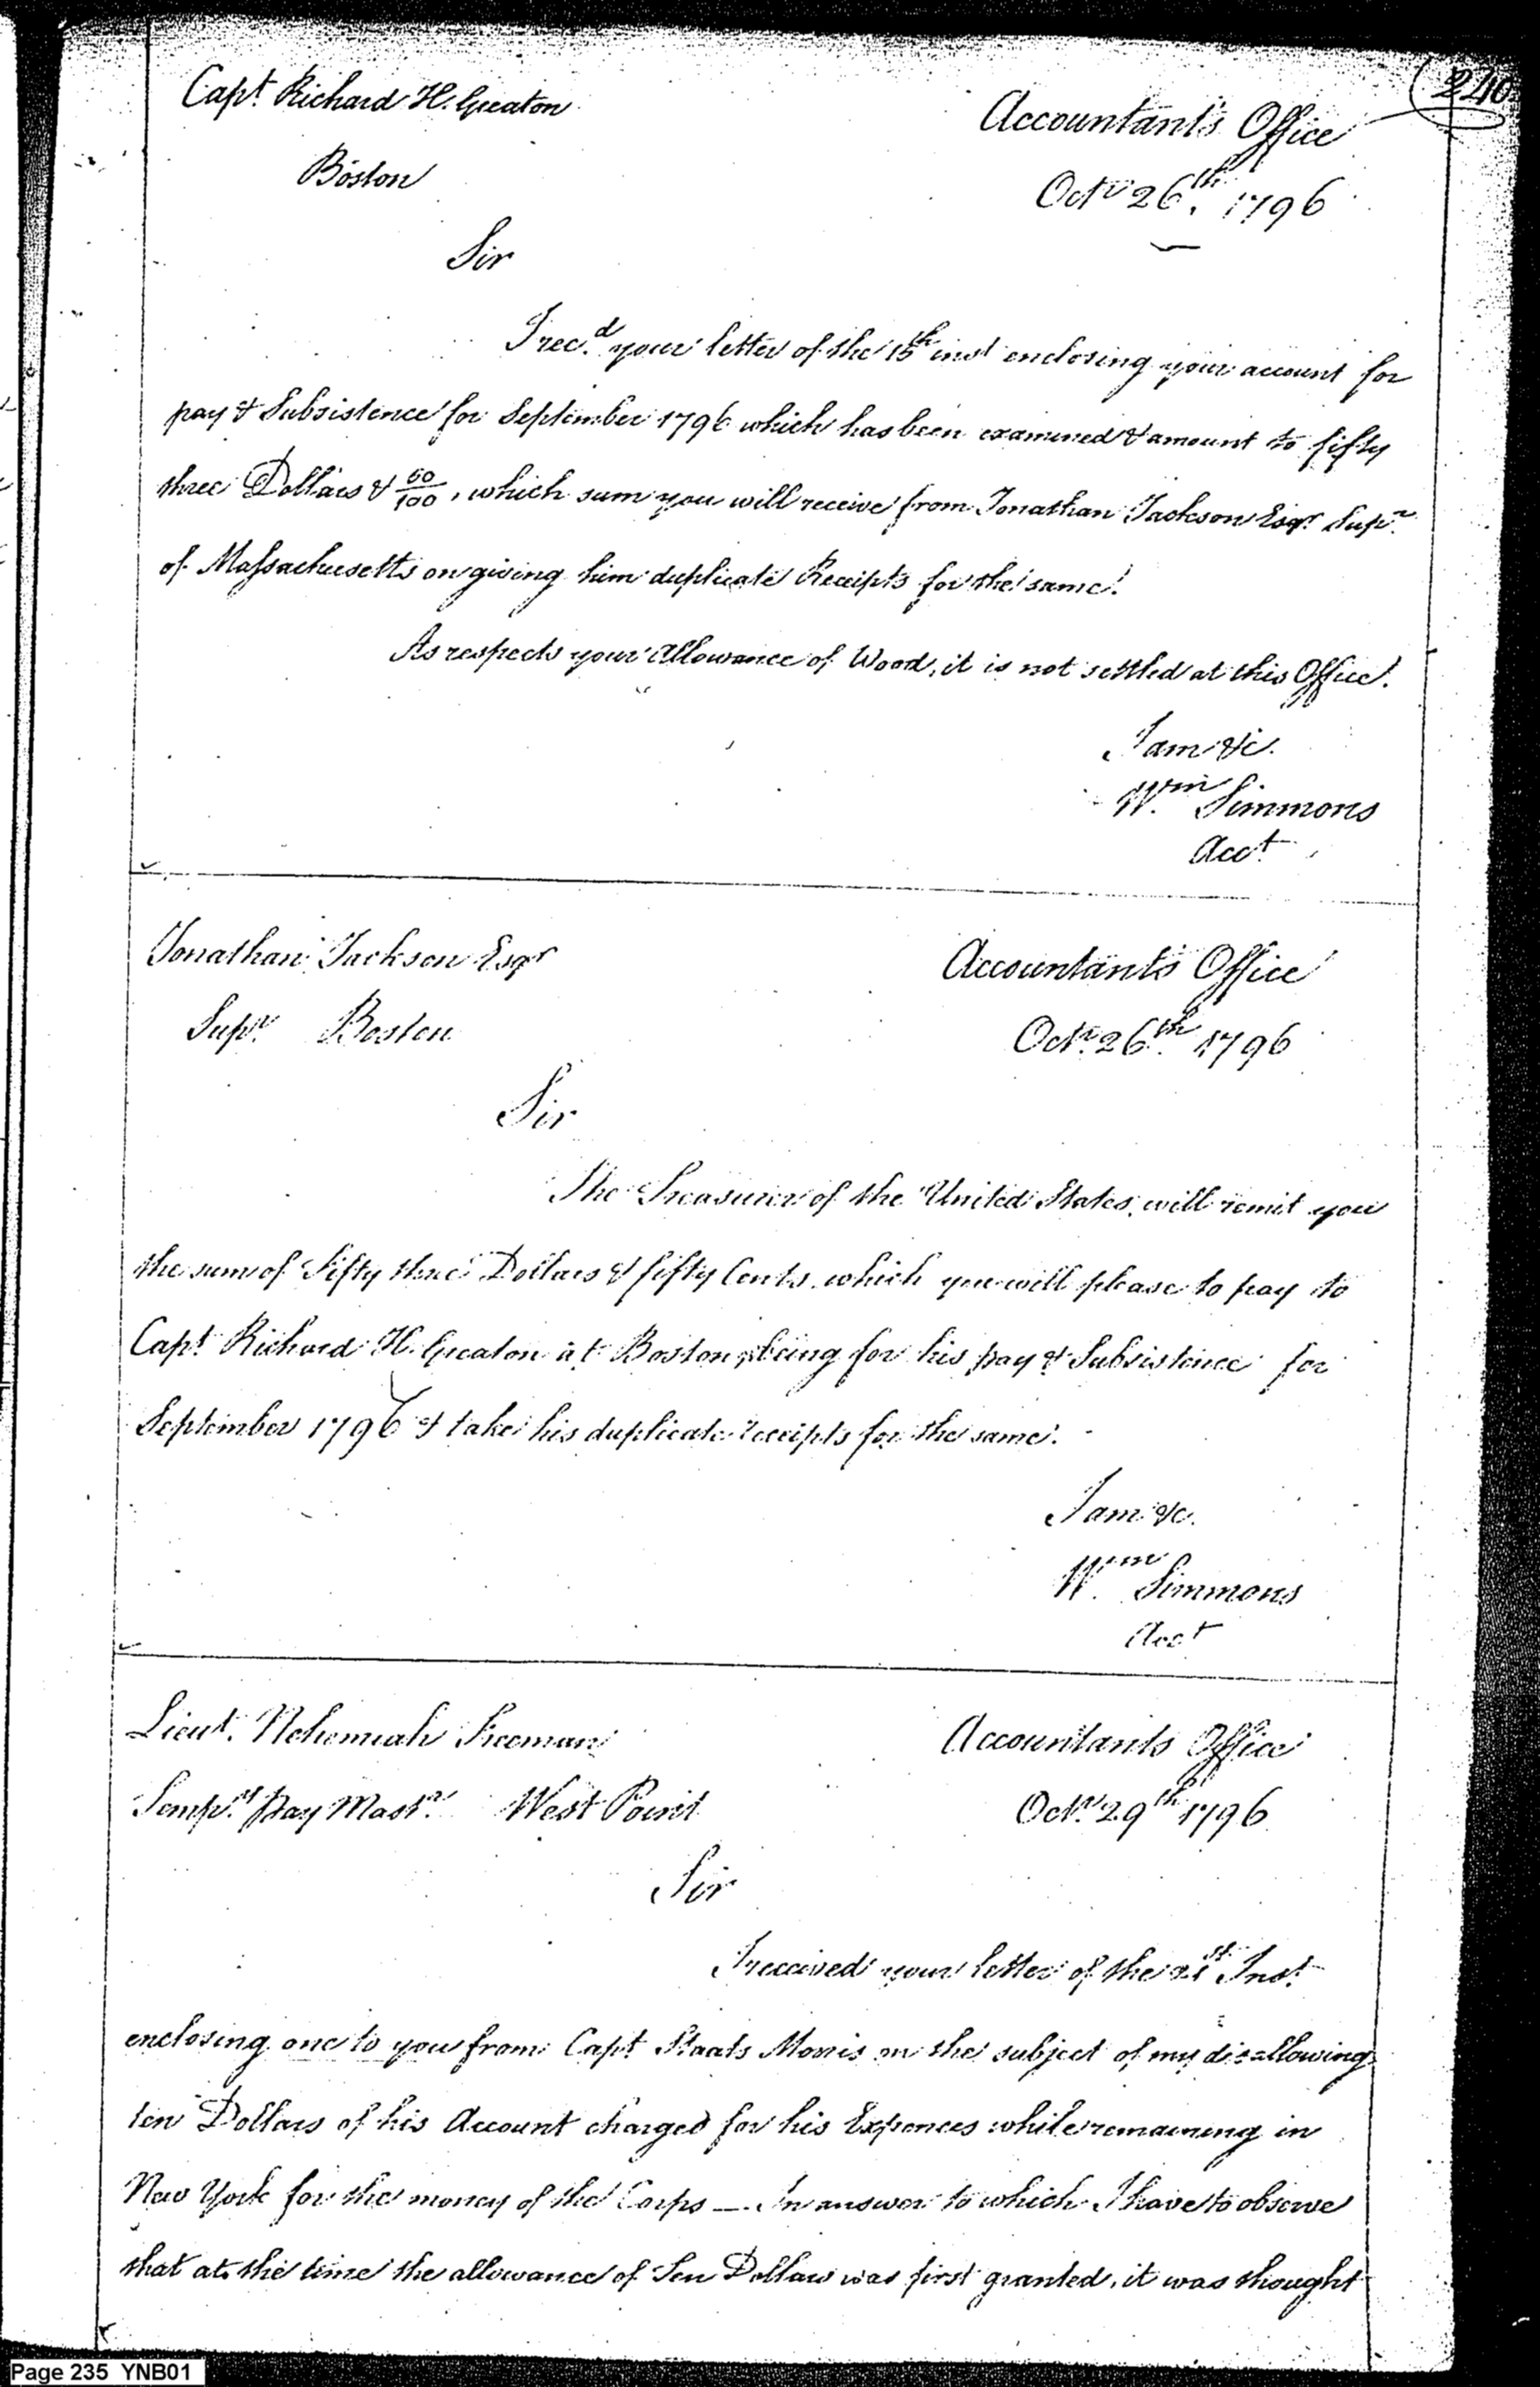 240
Capt. Richard H. Greaton
Accountant's Office
Boston
Octr 26th. 1796
Sir
I rec.d your letter of the 15th inst enclosing your account for
pay & Subsistence for September 1796 which has been examined & amount to fifty
three Dollars & 50/100, which sum you will receive from Jonathan Jackson Esqr. Supr.
of Massachusetts on giving him duplicate Receipts for the same.
As respects your allowance of Wood, it is not settled at this Office.
I am &c.
Wm. Simmons
Acct
Jonathan Jackson Esqr
Accountant's Office
Supr. Boston
Octr. 26th. 1796
Sir
The Treasurer of the United States, will remit you
the sum of Fifty three Dollars & fifty Cents, which you will please to pay to
Capt. Richard H. Greaton at Boston, being for his pay & Subsistence for
September 1796 & take his duplicate receipts for the same.
I am &c.
Wm. Simmons
Acct
Lieut. Nehemiah Freeman
Accountants Office
Temp.y Pay Mastr. West Point
Octr. 29th 1796
Sir
I received your letter of the 21st Inst.
enclosing one to you from Capt Staats Morris on the subject of my disallowing
ten Dollars of his Account charged for his Expences while remaining in
New York for the money of the Corps — In answer to which I have to observe
that at the time the allowance of Ten Dollars was first granted, it was thought
Page 235 YNB01